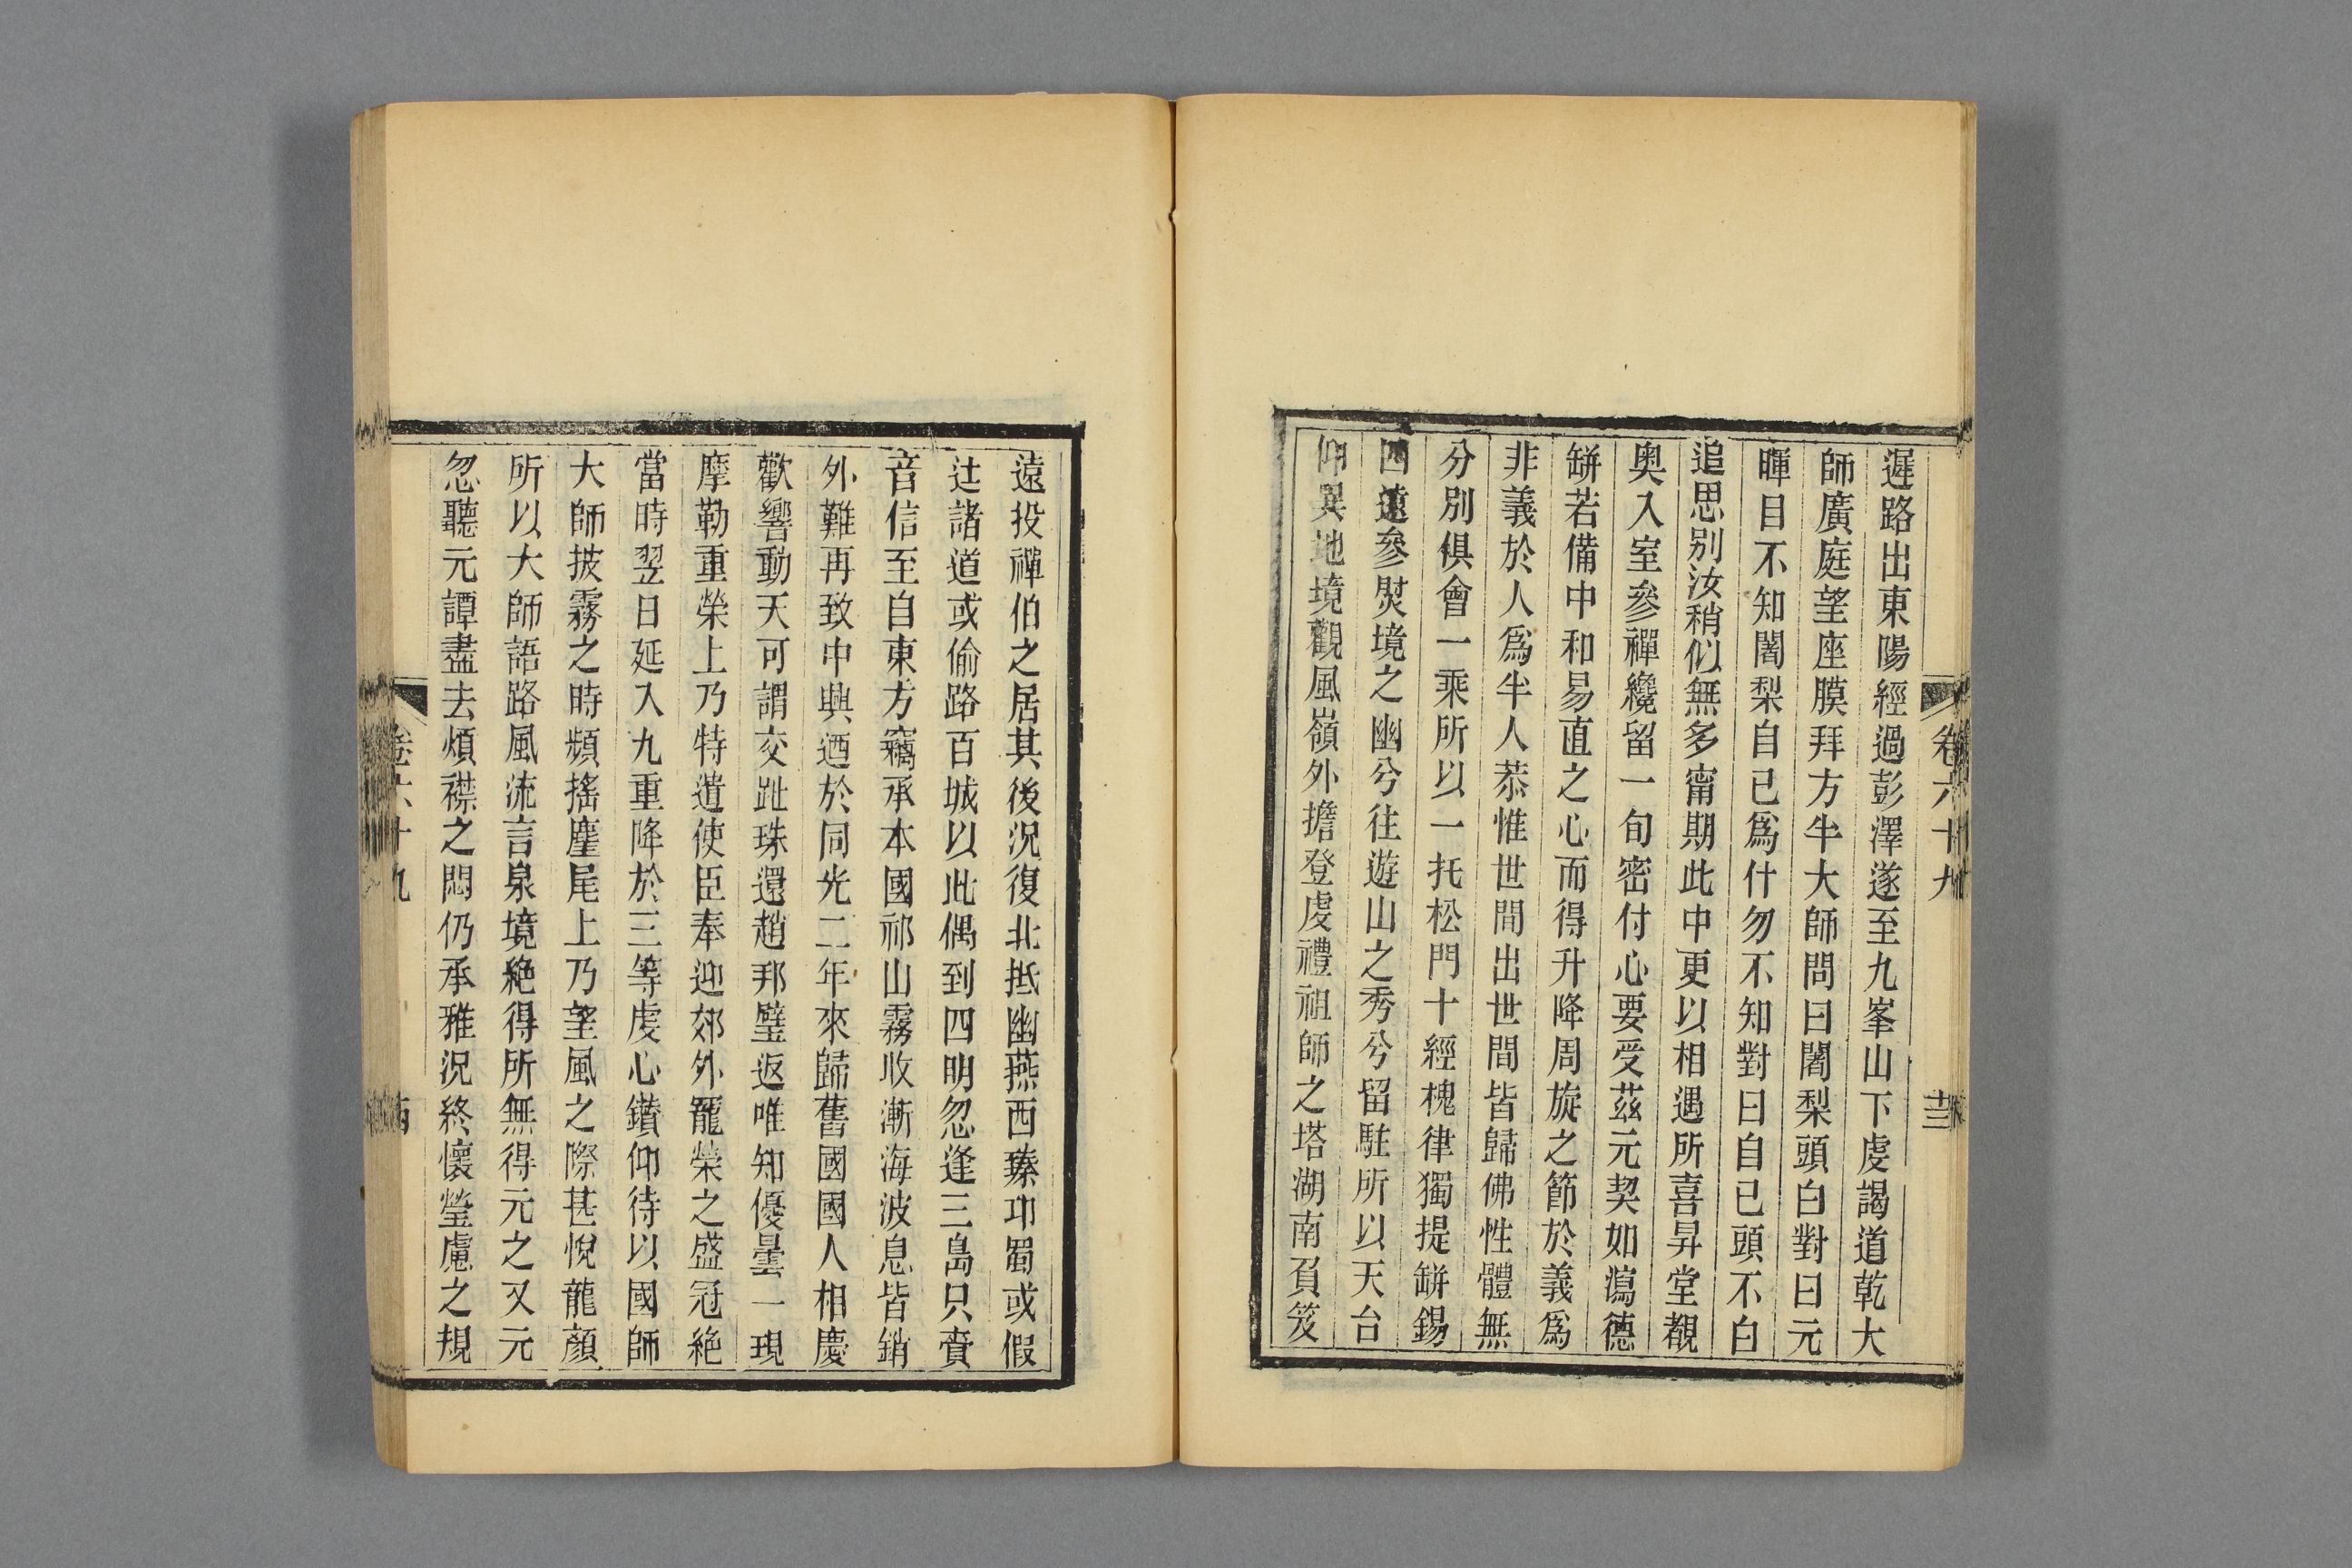 遲路出東陽經過彭澤遂至九峯山下虔謁道乾大
師廣庭望座膜拜方半大師問曰闍梨頭白對曰元
暉目不知闍梨自已爲什勿不知對曰自已頭不白
追思别汝稍似無多甯期此中更以相遇所喜昇堂覩
奥入室參禪纔留一旬密付心要受茲元契如瀉德
缾若備中和易直之心而得升降周旋之節於義爲
非義於人爲半人恭惟世間出世間皆歸佛性體無
分別俱會一乘所以一托松門十經槐律獨提缾錫
四遠參熨境之幽兮往遊山之秀兮留駐所以天台
仰異地境觀風嶺外擔登虔禮祖師之塔湖南負笈
卷六十九
遠投禪伯之居其後況復北抵幽燕西臻邛蜀或假
迋諸道或偷路百城以此偶到四明忽逢三島只賫
音信至自東方竊承本國祁山霧收漸海波息皆銷
外難再致中興迺於同光二年來歸舊國國人相慶
歡響動天可謂交趾珠還趙邦璧返唯知優曇一現
摩勒重榮上乃特遣使臣奉迎郊外寵榮之盛冠絶
當時翌日延入九重降於三等虔心鑚仰待以國師
大師披霧之時頻搖麈尾上乃望風之際甚悅龍顏
所以大師語路風流言泉境絶得所無得元之又元
忽聽元譚盡去煩襟之悶仍承雅況終懷瑩慮之規
卷六十九